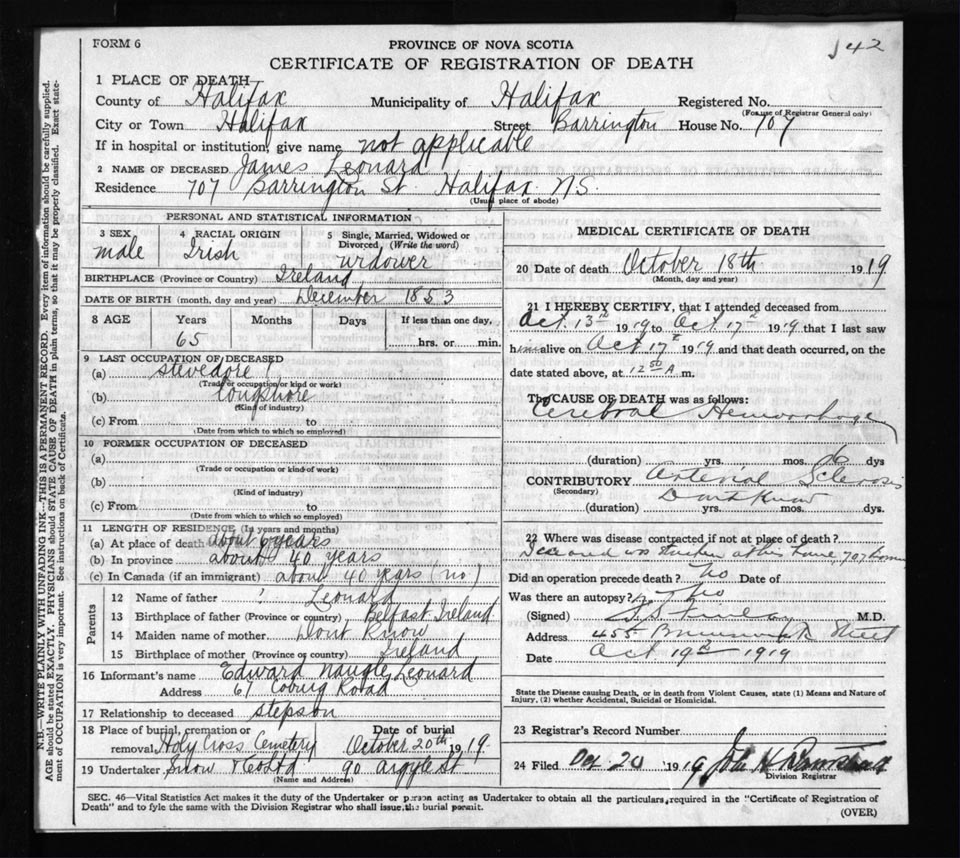 FORM 6
PROVINCE OF NOVA SCOTIA
CERTIFICATE OF REGISTRATION OF DEATH
1 PLACE OF DEATH
County of Halifax Municipality of Halifax Registered No.
(For use of Registrar General only)
City or Town Halifax Street Barrington House No. 707
If in hospital or institution, give name not applicable
2 NAME OF DECEASED James Leonard
Residence 707 Barrington St. Halifax N.S.
(Usual place of abode)
PERSONAL AND STATISTICAL INFORMATION
3 SEX male
4 RACIAL ORIGIN Irish
5 Single, Married, Widowed or Divorced, (Write the word) widower
BIRTHPLACE (Province or Country) Ireland
DATE OF BIRTH (month, day and year) December 1853
8 AGE Years 65 Months Days If less than one day,
hrs. or min.
9 LAST OCCUPATION OF DECEASED
(a) stevedore
(Trade or occupation or kind or work)
(b) longshore
(Kind of industry)
(c) From to
(Date from which to which so employed)
10 FORMER OCCUPATION OF DECEASED
(a)
(Trade or occupation or kind of work)
(b)
(Kind of industry)
(c) From to
(Date from which to which so employed)
11 LENGTH OF RESIDENCE (In years and months)
(a) At place of death about 6 years
(b) In province about 40 years
(c) In Canada (if an immigrant) about 40 years (no)
Parents
12 Name of father ? Leonard
13 Birthplace of father (Province or country) Belfast Ireland
14 Maiden name of mother Dont Know
15 Birthplace of mother (Province or country) Ireland
16 Informant's name Edward Naugle Leonard
Address 61 Coburg Road
17 Relationship to deceased stepson
18 Place of burial, cremation or removal, Holy Cross Cemetery
Date of burial October 20th 1919
19 Undertaker Snow & Co Ltd 90 Argyle St
(Name and Address)
MEDICAL CERTIFICATE OF DEATH
20 Date of death October 18th 1919
(Month, day and year)
21 I HEREBY CERTIFY, that I attended deceased from
Oct. 13th 1919 to Oct. 17th 1919 that I last saw
him alive on Oct 17th 1919 and that death occurred, on the
date stated above, at 12 50 A m.
The CAUSE OF DEATH was as follows:
Cerebral Hemorrhage
(duration) yrs. mos. 6 dys
CONTRIBUTORY Arterial Sclerosis
(Secondary) Dont Know
(duration) yrs. mos. dys.
22 Where was disease contracted if not at place of death?
Deceased was stricken at his home, 707
Did an operation precede death? No Date of
Was there an autopsy? No
(Signed) M.D.
Address 455 Brunswick Street
Date Oct 19th 1919
State the Disease causing Death, or in death from Violent Causes, state (1) Means and Nature of
Injury, (2) whether Accidental, Suicidal or Homicidal.
23 Registrar's Record Number
24 Filed Oct 20 1919 John H
Division Registrar
SEC. 46—Vital Statistics Act makes it the duty of the Undertaker or person acting as Undertaker to obtain all the particulars required in the "Certificate of Registration of
Death" and to fyle the same with the Division Registrar who shall issue the burial permit.
(OVER)
N.B.—WRITE PLAINLY WITH UNFADING INK—THIS IS A PERMANENT RECORD. Every item of information should be carefully supplied.
AGE should be stated EXACTLY. PHYSICIANS should STATE CAUSE OF DEATH in plain terms, so that it may be properly classified. Exact state-
ment of OCCUPATION is very important. See instructions on back of Certificate.